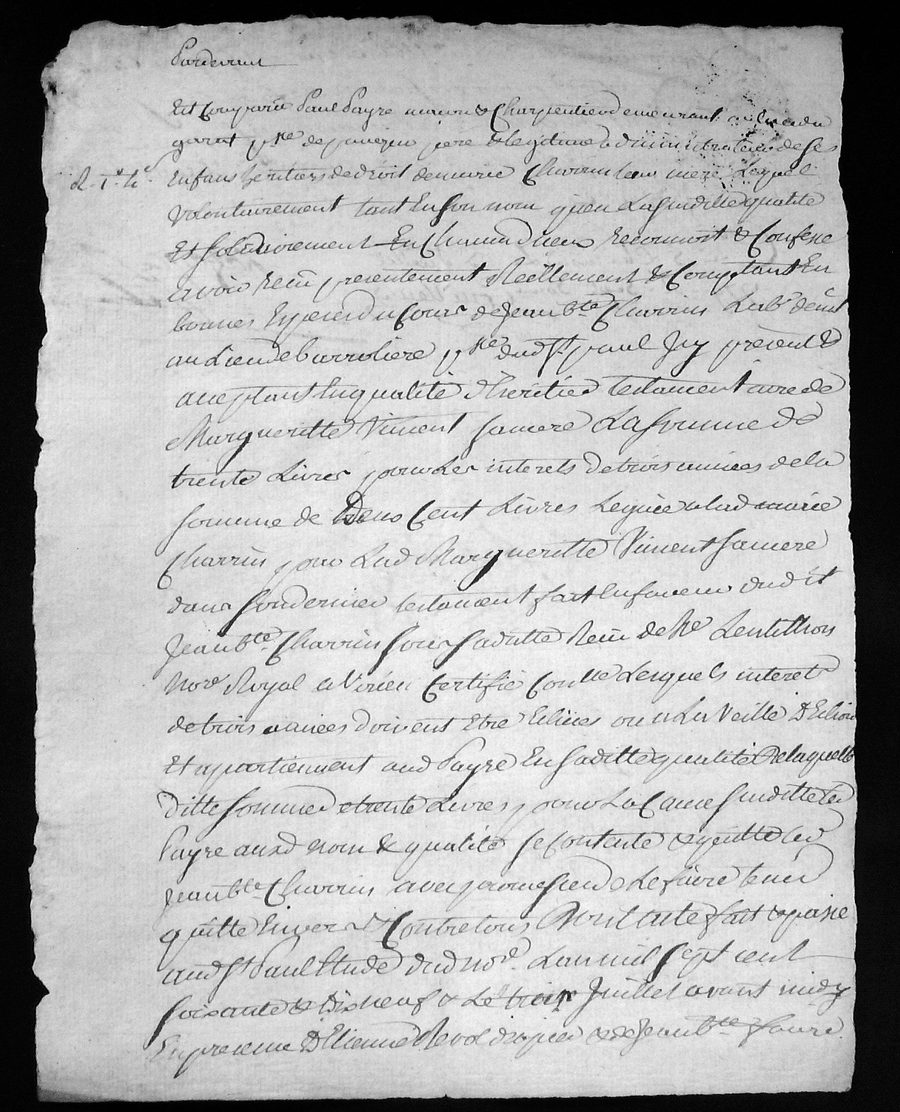 Pardevant
Est Comparu Paul Payre macon & Charpentier demeurant au lieu du
garat psse de pere & legitime administrateur de ses
Enfans heritiers de droit de marie Charrin leur mere Lequel
volontairement tant En son nom quen La susditte qualité
Et solidairement reconnoit & Confesse
avoir recu presentement Réellement & Comptant En
bonnes Especes du Cours de Jean bte Charrin Labr demt
au Lieu de barroliere psse dud st paul Jzy présent &
acceptant En qualité d'héritier testamentaire de
Margueritte Vincent sa mere La somme de
trente Livres pour Les interets de trois années de la
somme de Deux Cent Livres Leguée a lad marie
Charrin pour Lad Margueritte Vincent sa mere
dans son dernier testament fait En faveur dudit
Jean bte Charrin sous sa datte Recu de Me Lentillon
Nore Royal a Virieu Certifié Conlle Lesquels interets
de trois années doivent Etre La veille
Et apartiennent aud Payre En saditte qualité De laquelle
ditte somme de trente Livres pour La Cause susditte Led
Payre aud nom & qualité se contente & quitte led
Jean bte Charrin avec promesse de Le faire tenir
quitte Enver & Contre tous Dont acte fait & passé
aud st Paul Etude dud nore. L'an mil sept cent
soixante & dix neuf & Le trois Juillet avant midy
En presence D'Etienne Revol drapier & de Jean bte faure